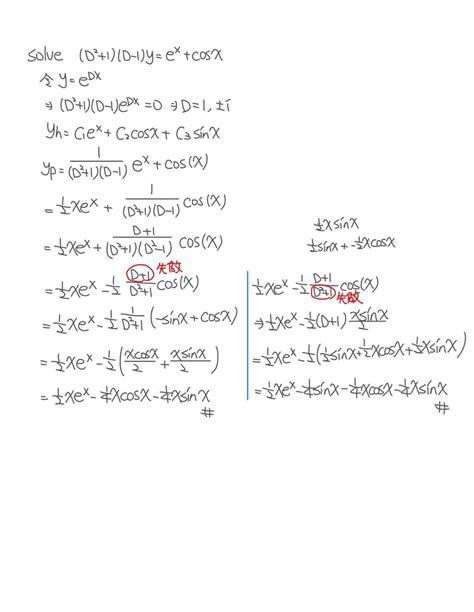 solve (D²+1)(D-1)y = eˣ + cosx
令 y = e^{DX}
⇒ (D²+1)(D-1)e^{DX} = 0 ⇒ D = 1, ±i
yh = C₁eˣ + C₂cosx + C₃sinx
yp = \frac{1}{(D²+1)(D-1)} eˣ + cos(x)
= ½xeˣ + \frac{1}{(D²+1)(D-1)} cos(x)
= ½xeˣ + \frac{D+1}{(D²+1)(D²-1)} cos(x)
= ½xeˣ - ½ \frac{D+1}{D²+1} cos(x) 失敗
= ½xeˣ - ½ \frac{1}{D²+1} (-sinx + cosx)
= ½xeˣ - ½ (\frac{xcosx}{2} + \frac{xsinx}{2})
= ½xeˣ - ¼xcosx - ¼xsinx #
½xsinx
½sinx + -½xcosx
½xeˣ - ½ \frac{D+1}{D²+1} cos(x) 失敗
⇒ ½xeˣ - ½(D+1) \frac{xsinx}{2}
= ½xeˣ - ½(½sinx + ½xcosx + ½xsinx)
= ½xeˣ - ¼sinx - ¼xcosx - ¼xsinx #